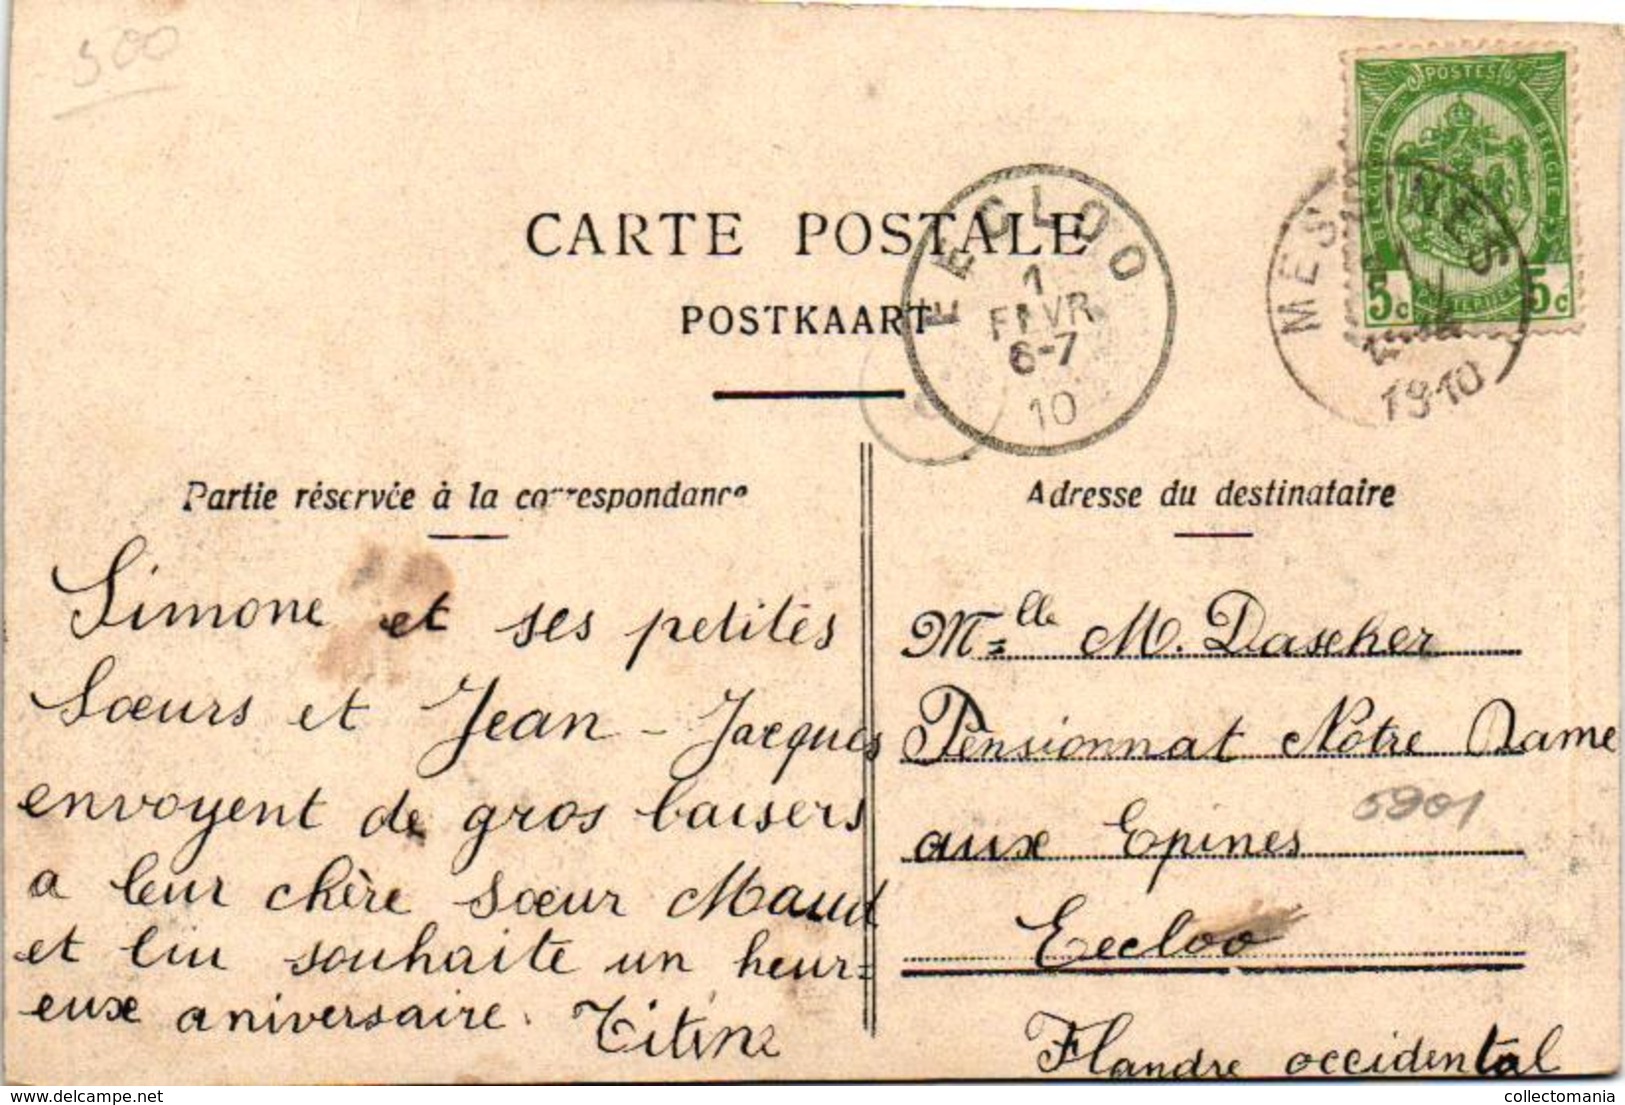 500
CARTE POSTALE
POSTKAART
EECLOO
1
FEVR
6-7
10
MESSINES
1910
POSTES
BELGIQUE
BELGIE
5c 5c
Partie réservée à la correspondance
Simone et ses petites
Sœurs et Jean - Jacques
envoyent de gros baisers
a leur chère sœur Maud
et lui souhaite un heur=
eux aniversaire. Titine
Adresse du destinataire
Mlle M. Dascher
Pensionnat Notre Dame
aux Epines
5901
Eecloo
Flandre occidental
www.delcampe.net
collectomania